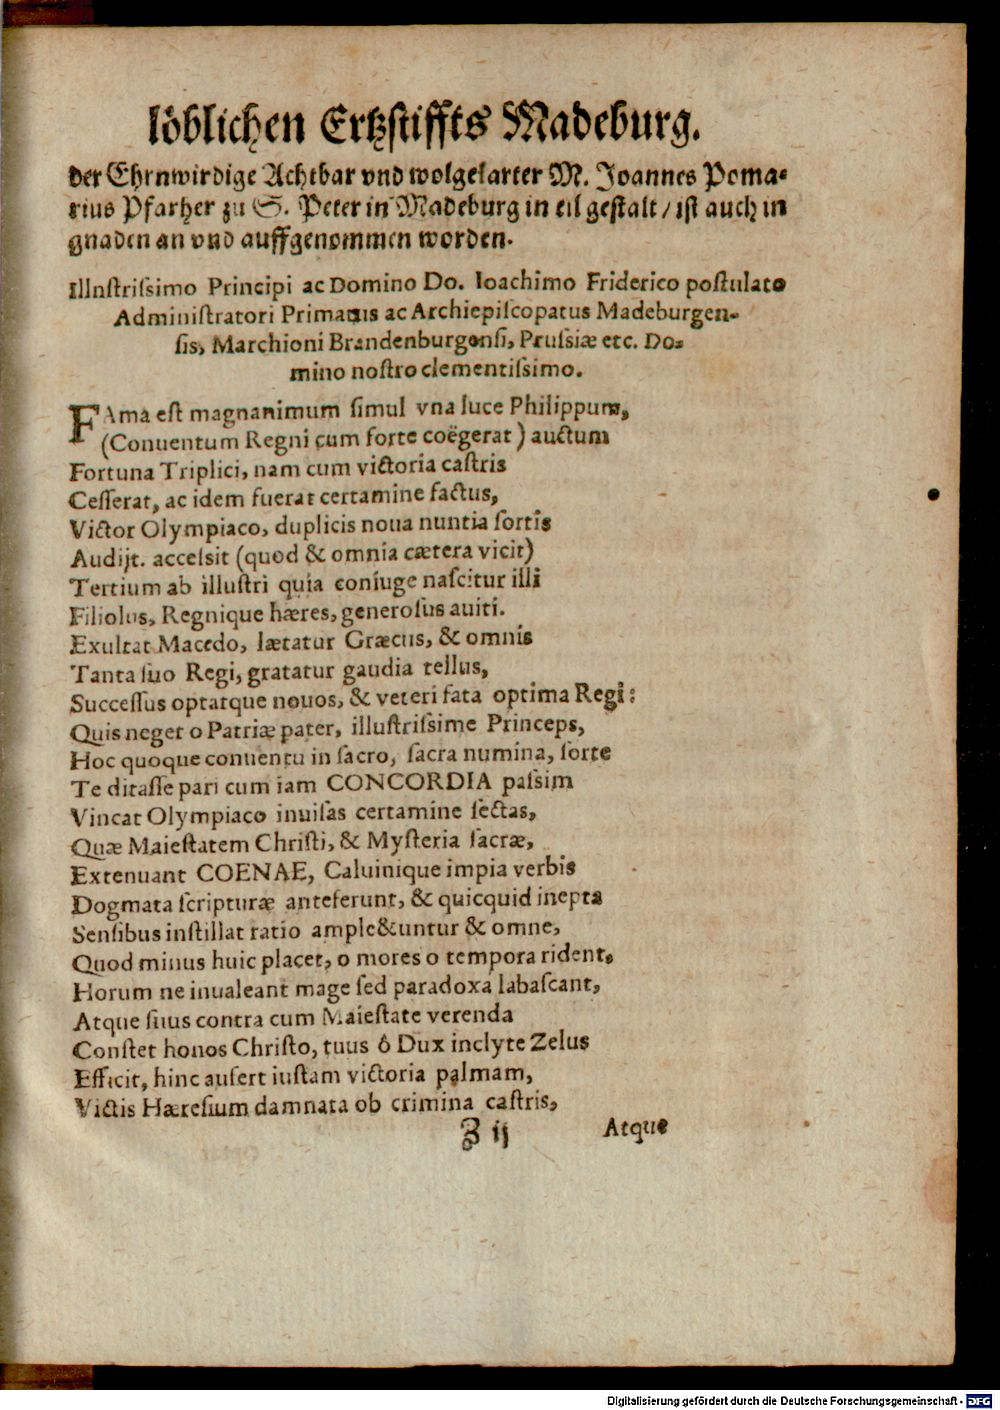 löblichen Ertzstiffts Madeburg.
der Ehrnwirdige Achtbar vnd wolgelarter M. Joannes Poma-
rius Pfarherr zu S. Peter in Madeburg in eil gestalt / ist auch in
gnaden an vnd auffgenommen worden.
Illnstrissimo Principi ac Domino Do. Ioachimo Friderico postulato
Administratori Primatus ac Archiepiscopatus Madeburgen-
sis, Marchioni Brandenburgensi, Prussiæ etc. Do-
mino nostro clementissimo.
FAma est magnanimum simul vna luce Philippum,
(Conuentum Regni cum forte coëgerat) auctum
Fortuna Triplici, nam cum victoria castris
Cesserat, ac idem fuerat certamine factus,
Victor Olympiaco, duplicis noua nuntia sortis
Audijt. accessit (quod & omnia cætera vicit)
Tertium ab illustri quia coniuge nascitur illi
Filiolus, Regnique hæres, generosus auiti.
Exultat Macedo, lætatur Græcus, & omnis
Tanta suo Regi, gratatur gaudia tellus,
Successus optatque nouos, & veteri fata optima Regi:
Quis neget o Patriæ pater, illustrissime Princeps,
Hoc quoque conuentu in sacro, sacra numina, sorte
Te ditasse pari cum iam CONCORDIA passim
Vincat Olympiaco inuisas certamine sectas,
Quæ Maiestatem Christi, & Mysteria sacræ,
Extenuant COENAE, Caluinique impia verbis
Dogmata scripturæ anteferunt, & quicquid inepta
Sensibus instillat ratio ample&untur & omne,
Quod minus huic placet, o mores o tempora rident.
Horum ne inualeant mage sed paradoxa labascant,
Atque suus contra cum Maiestate verenda
Constet honos Christo, tuus ô Dux inclyte Zelus
Efficit, hinc aufert iustam victoria palmam,
Victis Hæresium damnata ob crimina castris,
Z ij Atque
Digitalisierung gefördert durch die Deutsche Forschungsgemeinschaft - DFG